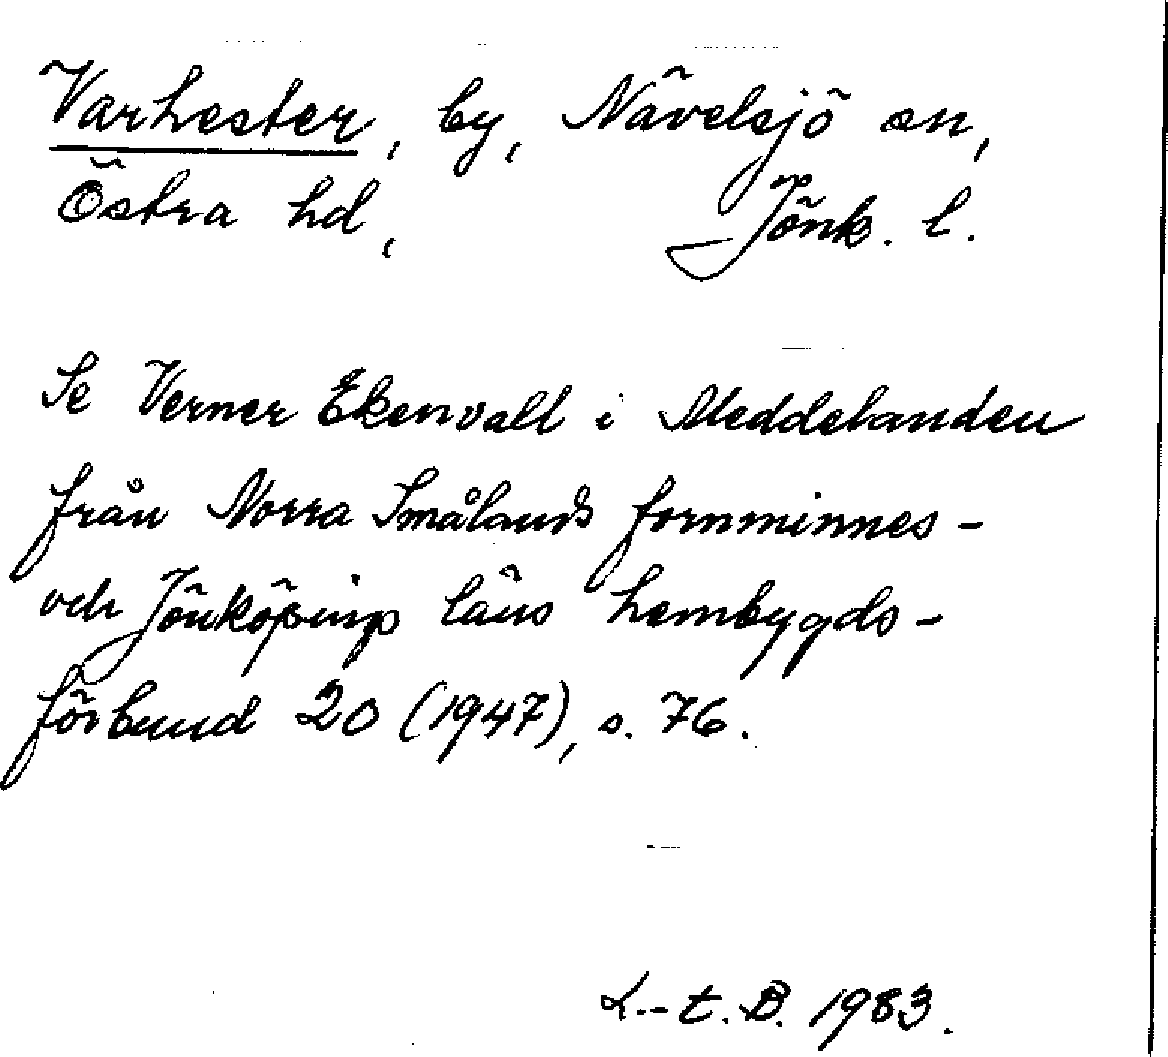 Varhester, by, Nävelsjö sn,
Östra hd, Jönk. l.
Se Verner Ekenvall i Meddelanden
från Norra Smålands fornminnes-
och Jönköpings läns hembygds-
förbund 20 (1947), s. 76.
L.-t. B. 1983.